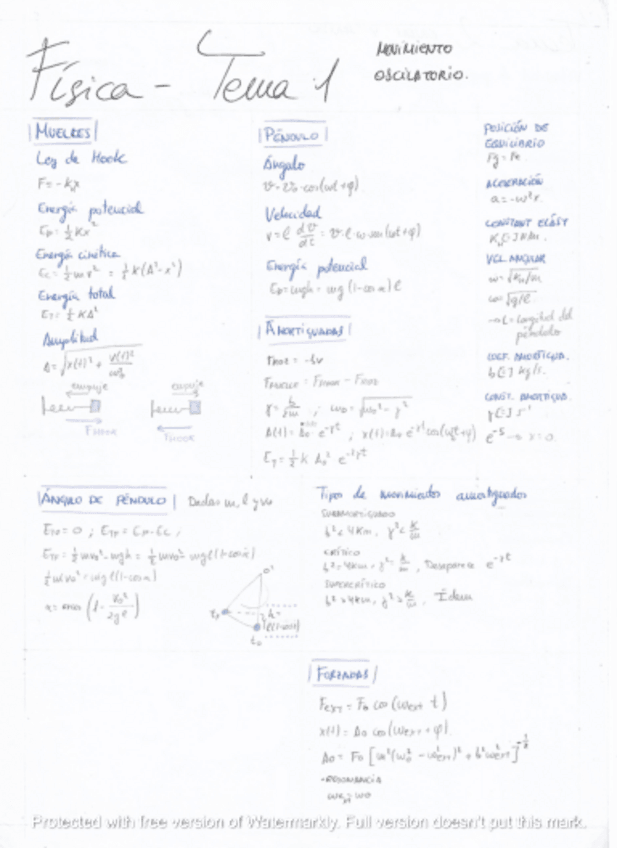 Física - Tema 1
MOVIMIENTO
OSCILATORIO.
MUELLES
Ley de Hook
F = -kx
Energía potencial
Ep = ½ Kx²
Energía cinética
Ec = ½ mv² = ½ K(A² - x²)
Energía total
ET = ½ KA²
Amplitud
A = √(x(t)² + v(t)²/ω₀²)
empuje
empuje
FHOOK
FHOOK
PÉNDULO
Ángulo
Velocidad
Energía potencial
Ep = mgh = mg (1 - cos α) l
AMORTIGUADAS
FROZ = -bv
γ = b/2m ; ω₀ = √(ω₀² - γ²)
A(t) = A₀ e^-γt ; x(t) = A₀ e^-γt cos(ωt+φ)
ET = ½ K A₀² e^-2γt
POSICIÓN DE
EQUILIBRIO
Fg = Fe
ACELERACIÓN
a = -ω²x.
VEL ANGULAR
ω = √g/l
→ L = Longitud del
péndulo
COEF. AMORTIGUA.
b [=] kg/s.
CONST. AMORTIGUA.
γ [=] s⁻¹
e^-5 → x = 0.
ÁNGULO DE PÉNDULO Dadas m, l y v₀
½ mv₀² = mgl(1-cos α)
Tipos de movimientos amortiguados
SUBAMORTIGUADO
b² < 4Km, γ² < k/m
CRÍTICO
b² = 4Km, γ² = k/m, Desaparece e^-γt
SUPERCRÍTICO
b² > 4Km, γ² > k/m, Ídem
FORZADAS
Fext = F₀ cos (ωext t)
x(t) = A₀ cos (ωext + φ)
A₀ = F₀ [m²(ω₀² - ω²ext)² + b²ω²ext]^-½
-RESONANCIA
ωext = ω₀
Protected with free version of Watermarkly. Full version doesn't put this mark.